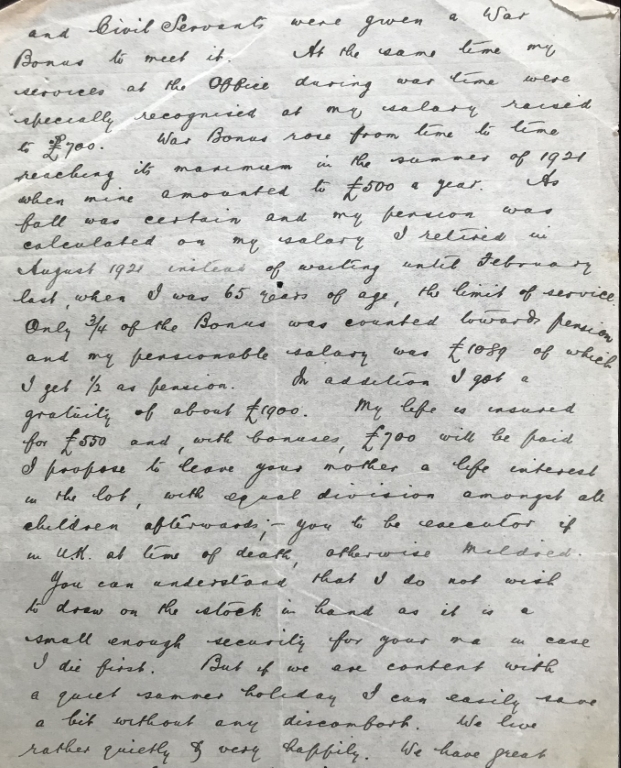 and Civil Servants were given a War
Bonus to meet it. At the same time my
services at the Office during war time were
specially recognised at my salary raised
to £700. War Bonus rose from time to time
reaching its maximum in the summer of 1921
when mine amounted to £500 a year. As
fall was certain and my pension was
calculated on my salary I retired in
August 1921 instead of waiting until February
last, when I was 65 years of age, the limit of service.
Only 3/4 of the Bonus was counted towards pension
and my pensionable salary was £1089 of which
I get 1/2 as pension. In addition I got a
gratuity of about £1900. My life is insured
for £550 and, with bonuses, £700 will be paid
I propose to leave your mother a life interest
in the lot, with equal division amongst all
children afterwards;- you to be executor if
in U.K. at time of death, otherwise Mildred.
You can understand that I do not wish
to draw on the stock in hand as it is a
small enough security for your ma in case
I die first. But if we are content with
a quiet summer holiday I can easily save
a bit without any discomfort. We live
rather quietly & very happily. We have great